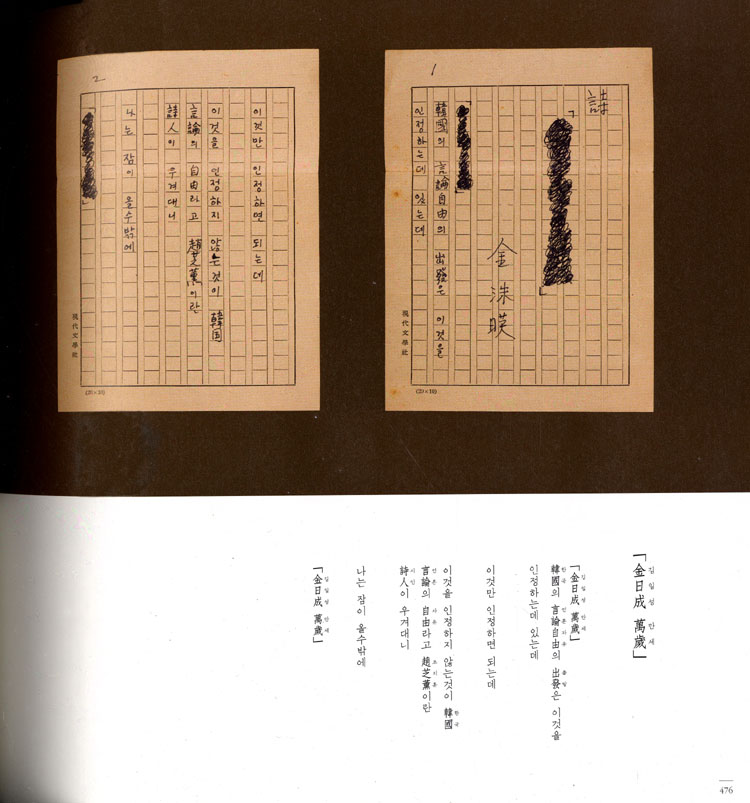 1
詩
金洙暎
韓國의 言論自由의 出發은 이것을
인정하는데 있는데
現代文學社
(20×10)
2
이것만 인정하면 되는데
이것을 인정하지 않는것이 韓国
言論의 自由라고 趙芝薰이란
詩人이 우겨대니
나는 잠이 올수밖에
現代文學社
(20×10)
김일성 만세
「金日成 萬歲」
김일성 만세
「金日成 萬歲」
한국 언론자유 출발
韓國의 言論自由의 出發은 이것을
인정하는데 있는데
이것만 인정하면 되는데
한국
이것을 인정하지 않는것이 韓國
언론 자유 조지훈
言論의 自由라고 趙芝薰이란
시인
詩人이 우겨대니
나는 잠이 올수밖에
김일성 만세
「金日成 萬歲」
476